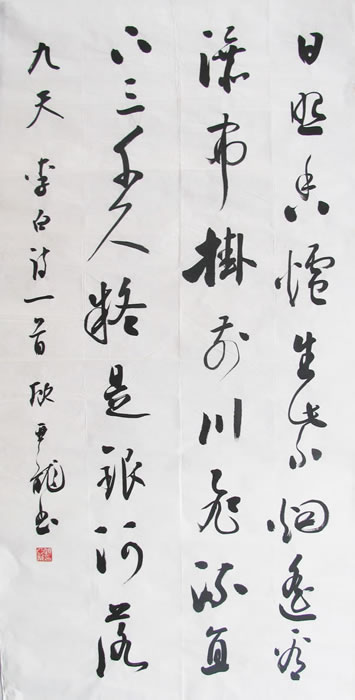 日照香爐生紫烟遙看
瀑布掛前川飛流直
下三千尺疑是銀河落
九天 李白詩一首 書